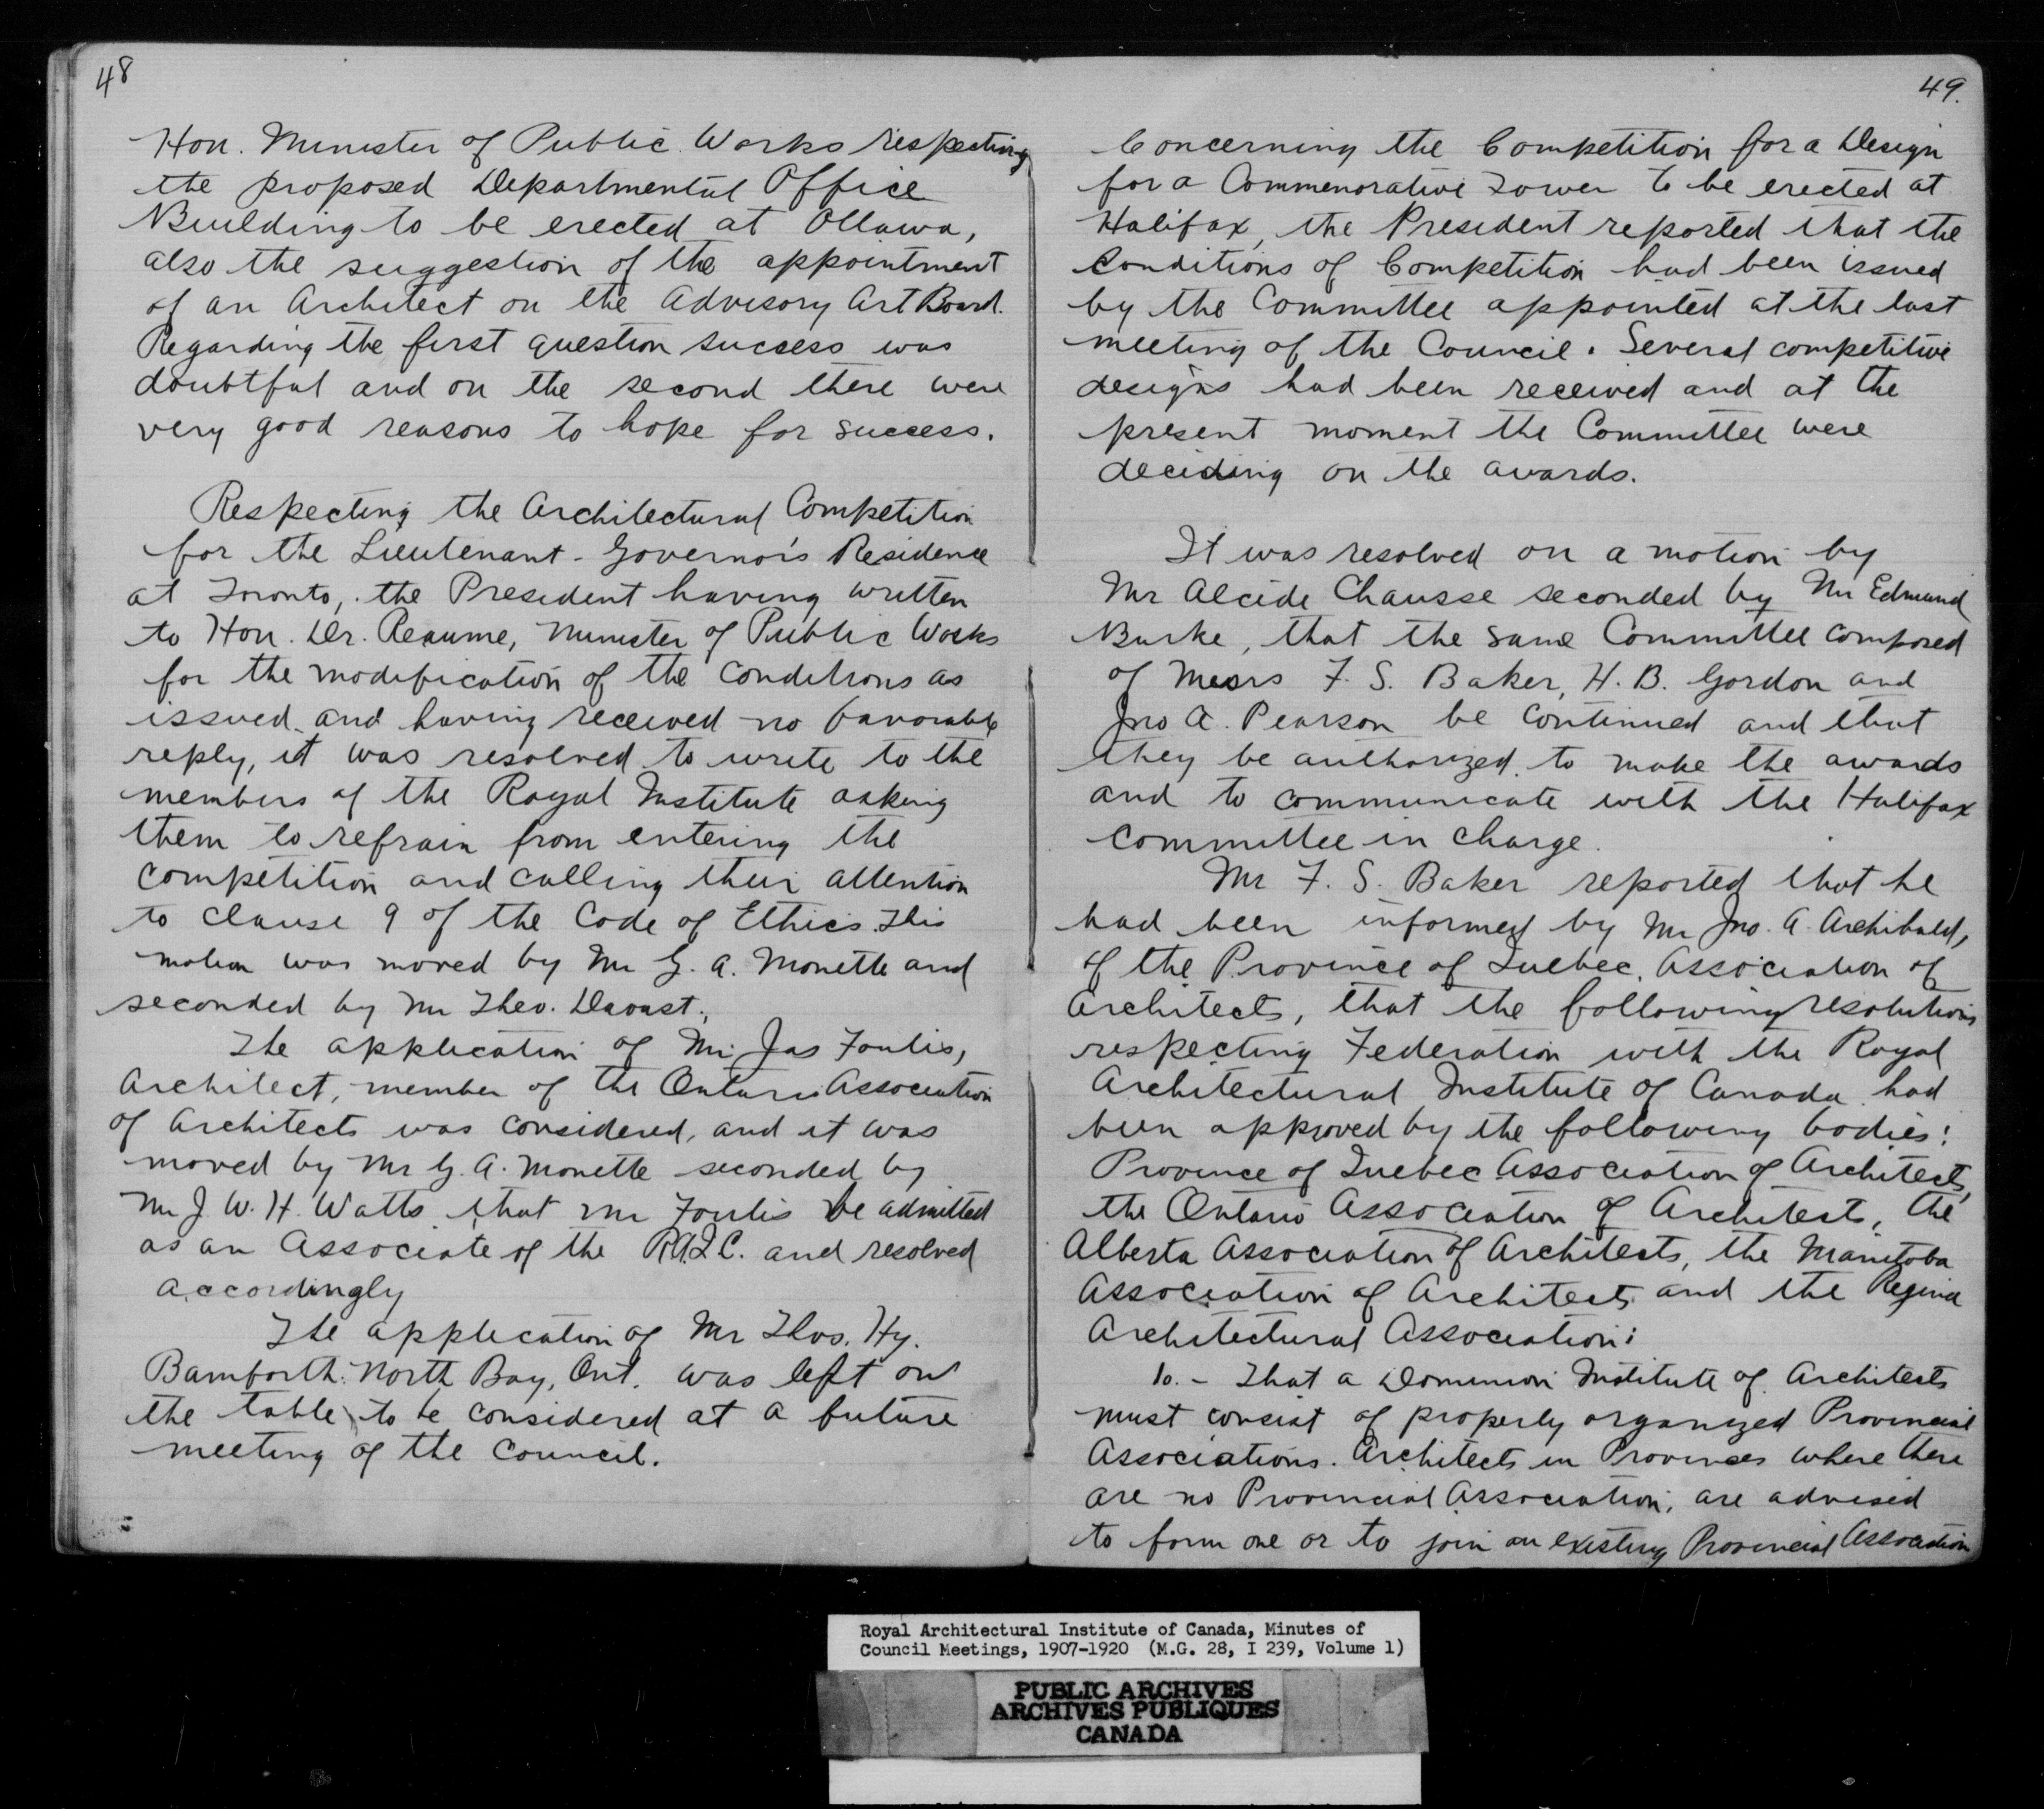 48
Hon. Minister of Public Works respecting
the proposed Departmental Office
Building to be erected at Ottawa,
also the suggestion of the appointment
of an Architect on the Advisory Art Board.
Regarding the first question success was
doubtful and on the second there were
very good reasons to hope for success.
Respecting the Architectural Competition
for the Lieutenant-Governor's Residence
at Toronto, the President having written
to Hon. Dr. Reaume, Minister of Public Works
for the modification of the conditions as
issued and having received no favorable
reply, it was resolved to write to the
members of the Royal Institute asking
them to refrain from entering the
competition and calling their attention
to clause 9 of the Code of Ethics. This
motion was moved by Mr G. A. Monette and
seconded by Mr Theo. Daoust.
The application of Mr Jas Foulis,
Architect, member of the Ontario Association
of Architects was considered, and it was
moved by Mr G. A. Monette seconded by
Mr J. W. H. Watts that Mr Foulis be admitted
as an Associate of the R.A.I.C. and resolved
accordingly
The application of Mr Thos. Hy.
Bamforth. North Bay, Ont. was left on
the table to be considered at a future
meeting of the Council.
49.
Concerning the Competition for a Design
for a Commenorative Tower to be erected at
Halifax, the President reported that the
conditions of Competition had been issued
by the Committee appointed at the last
meeting of the Council. Several competitive
designs had been received and at the
present moment the Committee were
deciding on the awards.
It was resolved on a motion by
Mr Alcide Chausse seconded by Mr Edmund
Burke, that the same Committee composed
of Messrs F. S. Baker, H. B. Gordon and
Jno A. Pearson be continued and that
they be authorized to make the awards
and to communicate with the Halifax
committee in charge.
Mr F. S. Baker reported that he
had been informed by Mr Jno. A. Archibald,
of the Province of Quebec Association of
Architects, that the following resolutions
respecting Federation with the Royal
Architectural Institute of Canada had
been approved by the following bodies:
Province of Quebec Association of Architects,
the Ontario Association of Architects, the
Alberta Association of Architects, the Manitoba
Association of Architects and the Regina
Architectural Association:
1o. - That a Dominion Institute of Architects
must consist of properly organized Provincial
Associations. Architects in Provinces where there
are no Provincial Association, are advised
to form one or to join an existing Provincial Association
Royal Architectural Institute of Canada, Minutes of
Council Meetings, 1907-1920 (M.G. 28, I 239, Volume 1)
PUBLIC ARCHIVES
ARCHIVES PUBLIQUES
CANADA